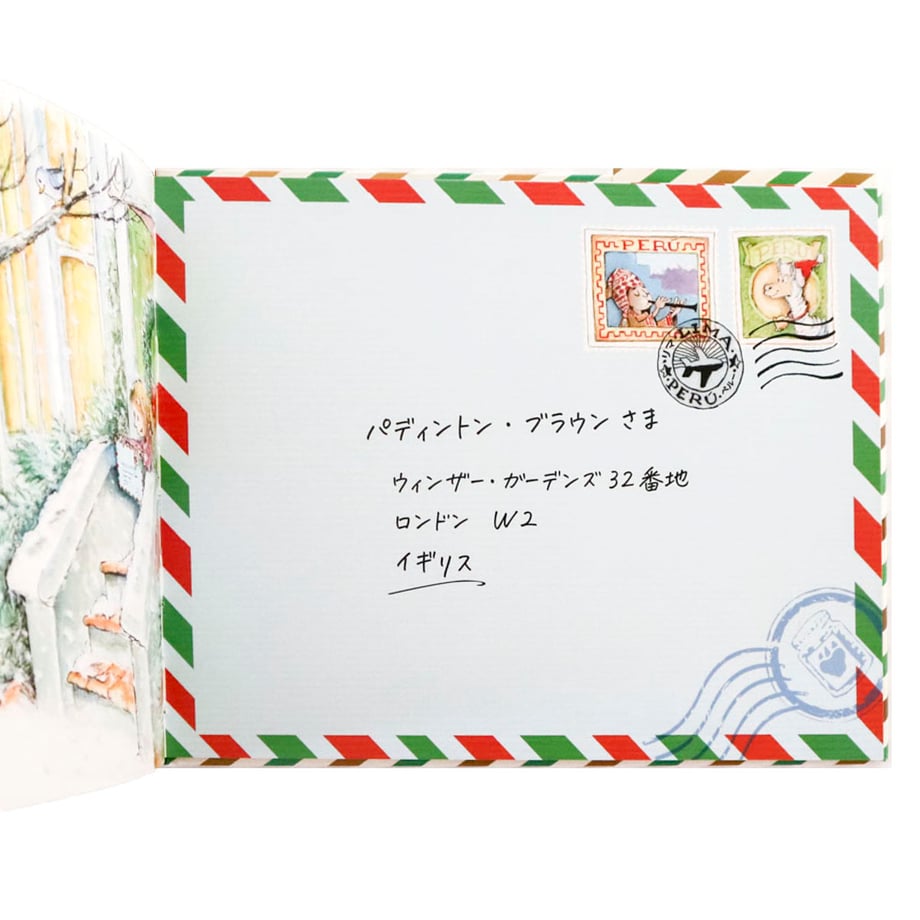 PERÚ
PERÚ
リマ・LIMA・
・PERÚ・ペルー
パディントン・ブラウン さま
ウィンザー・ガーデンズ 32番地
ロンドン W2
イギリス